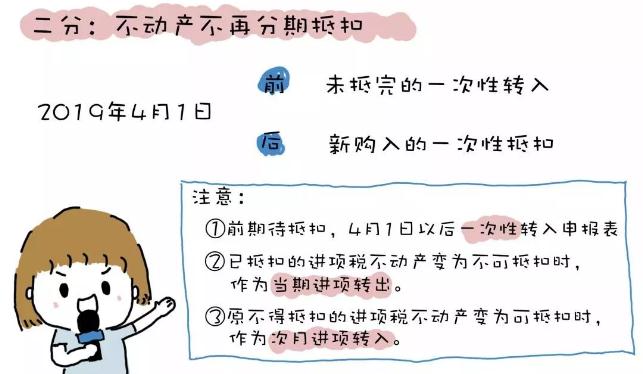 二分：不动产不再分期抵扣
前 未抵完的一次性转入
2019年4月1日
后 新购入的一次性抵扣
注意：
①前期待抵扣，4月1日以后一次性转入申报表
②已抵扣的进项税不动产变为不可抵扣时，
作为当期进项转出。
③原不得抵扣的进项税不动产变为可抵扣时，
作为次月进项转入。